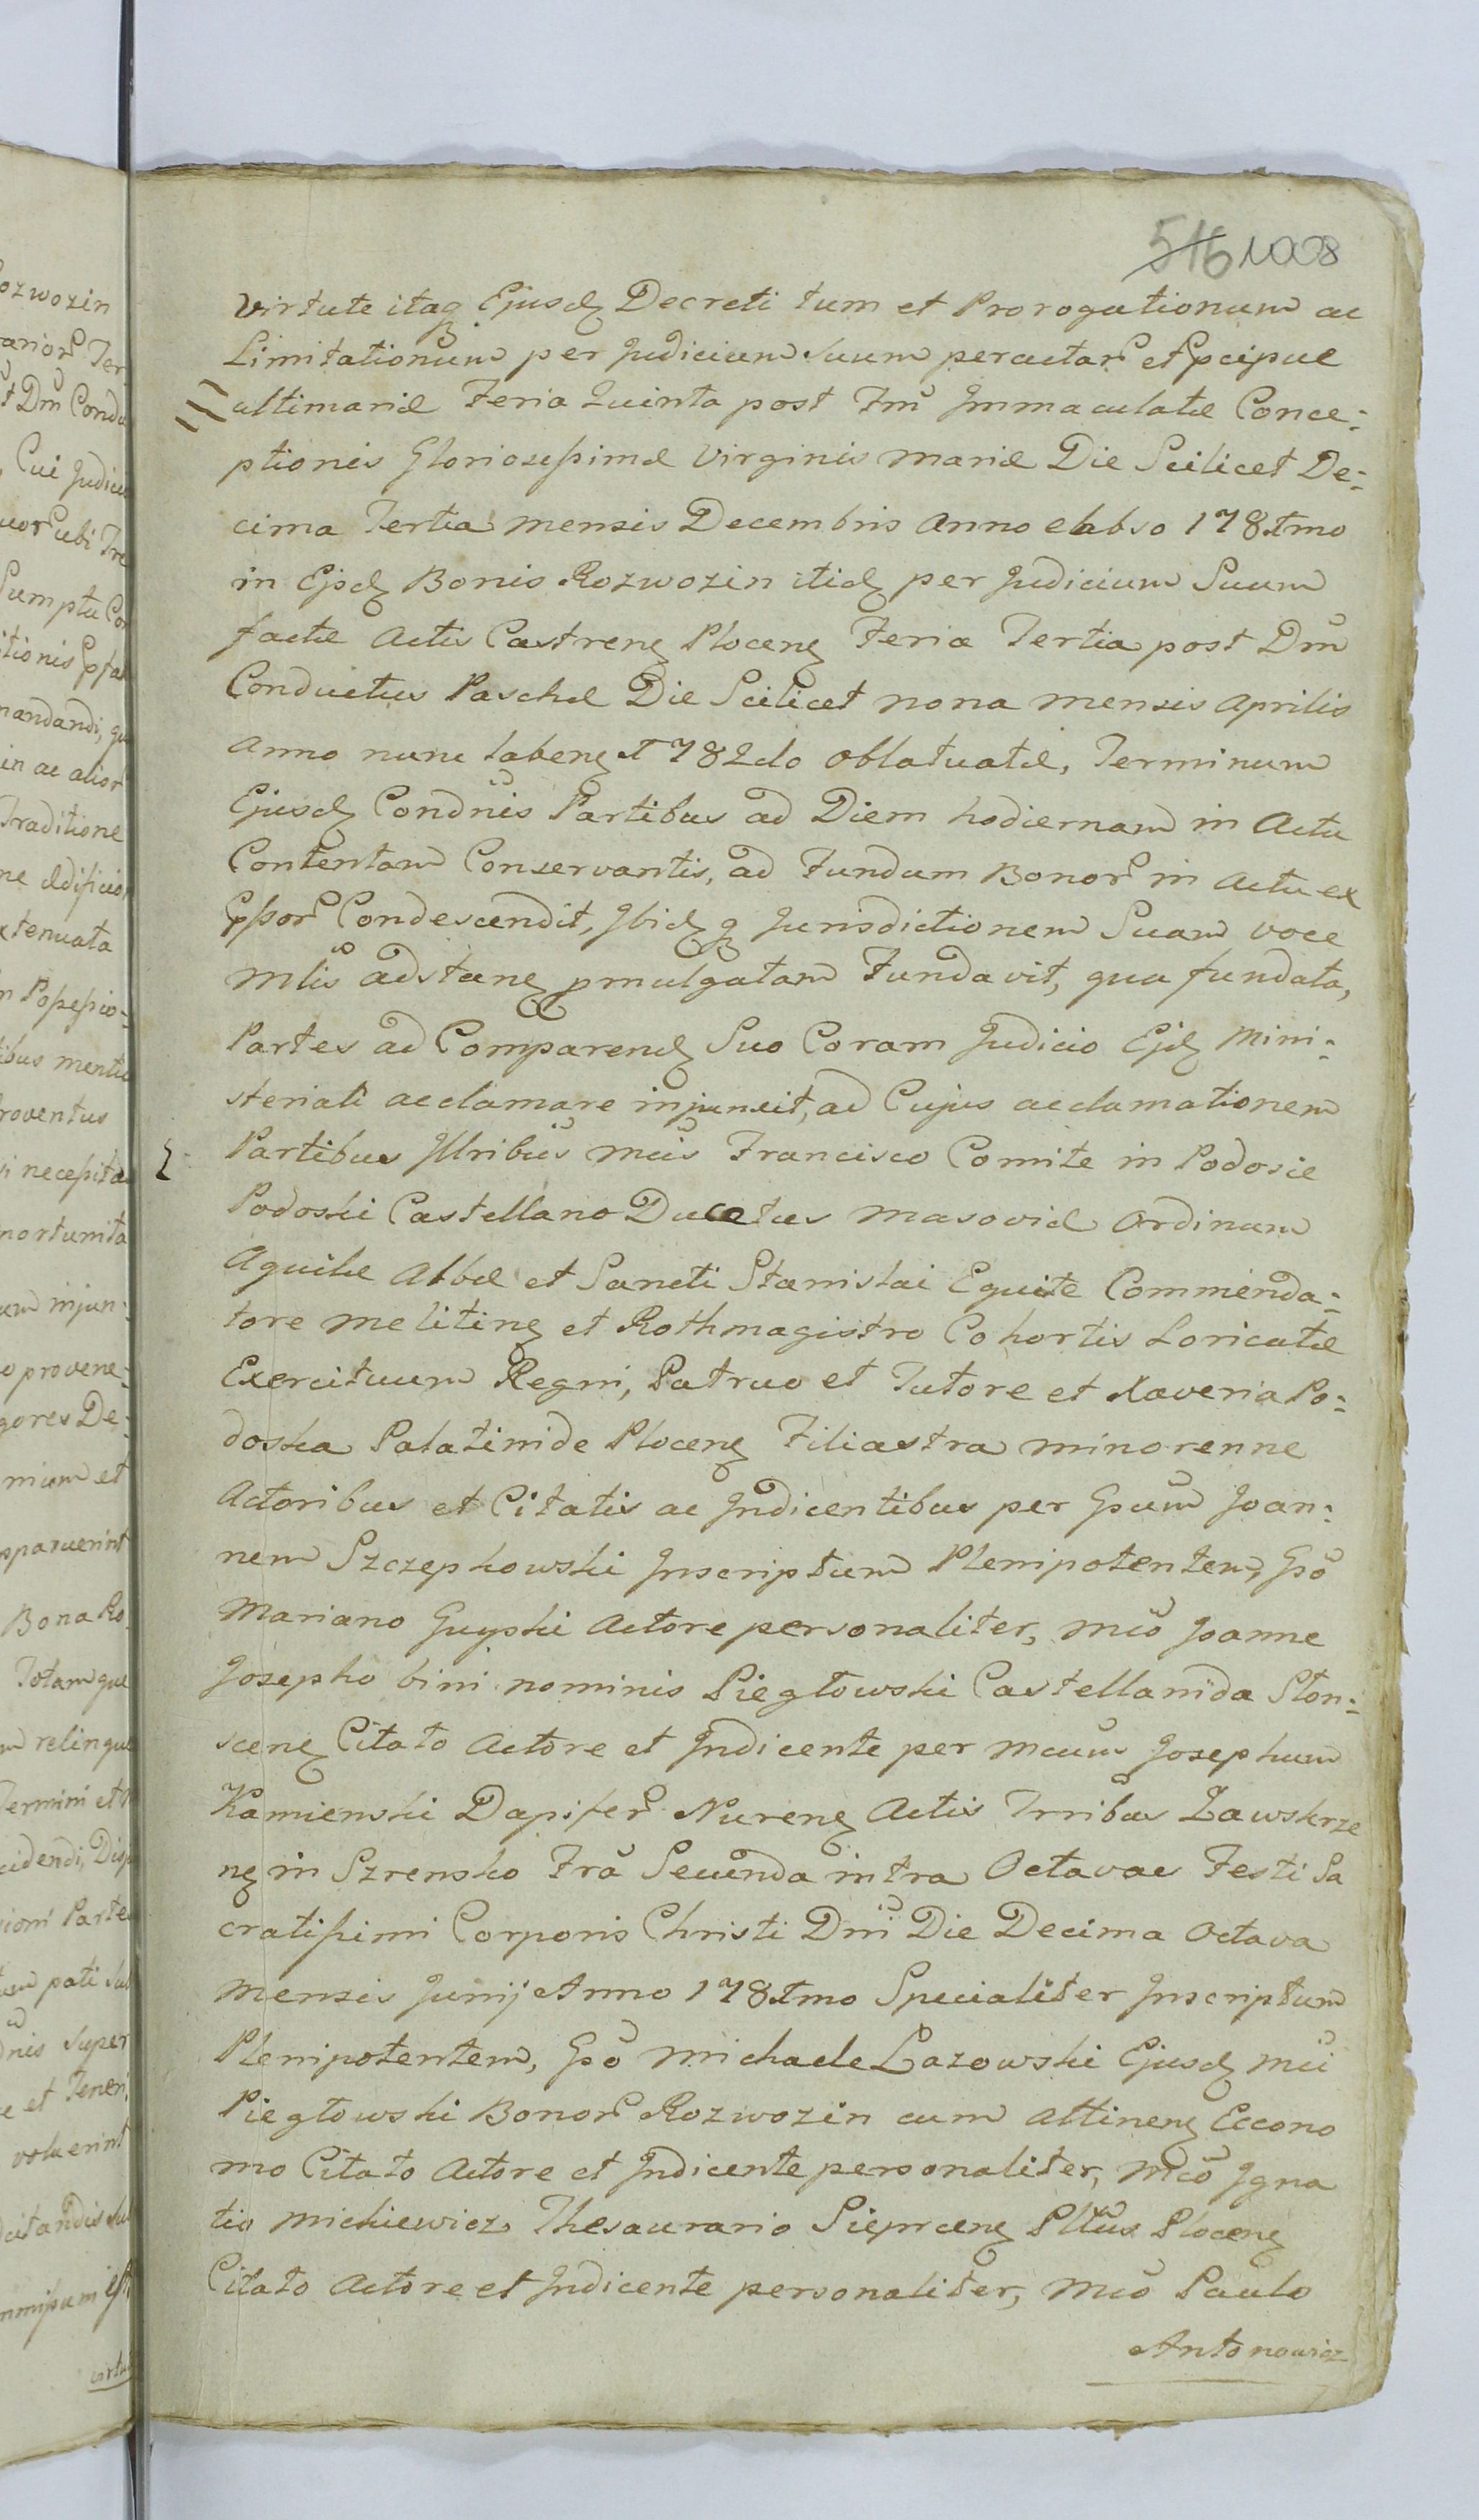 516 1008
Virtute itaq Ejusd Decreti tum et Prorogationum ac
Limitationum per Judicium Suum peractar et pcipue
ultimariæ Feria Quinta post Fm Immaculatæ Conce:
ptionis Gloriosissimæ Virginis Mariæ Die Scilicet De:
cima Tertia mensis Decembris Anno elabso 1781mo
in Ejsd Bonis Rozwozin itid per Judicium Suum
factæ Actis Castren Plocen Feria Tertia post Dm
Conductus Paschæ Die Scilicet nona mensis Aprilis
Anno nunc laben 1782do oblatuatæ, Terminum
Ejusd Condnis Partibus ad Diem hodiernam in Actu
Contentam Conservantis, ad Fundum Bonor in Actu ex
pssor Condescendit, Ibid q Jurisdictionem Suam voce
Mlis adstan pmulgatam Fundavit, qua fundata,
Partes ad Comparend Suo Coram Judicio Ejd Mini:
steriali acclamare injunxit, ad Cujus acclamationem
Partibus Illribus Mcis Francisco Comite in Podosie
Podoski Castellano Ducatus Masoviæ Ordinum
Aquilæ Albæ et Sancti Stanislai Equite Commenda:
tore Melitin et Rothmagistro Cohortis Loricatæ
Exercituum Regni, Patruo et Tutore et Xaveria Po:
doska Palatinide Plocen Filiastra minorenne
Actoribus et Citatis ac Indicentibus per Gsum Joan:
nem Szczepkowski Inscriptum Plenipotentem, Gso
Mariano Guyski Actore personaliter, Mco Joanne
Josepho bini nominis Piegłowski Castellanida Slon:
scen Citato Actore et Indicente per Mcum Josephum
Kamienski Dapifer Nuren Actis Trribus Zawskrze
n in Szrensko Fra Secunda intra Octavas Festi Sa
cratissimi Corporis Christi Dni Die Decima Octava
mensis Junij Anno 1781mo Specialiter Inscriptum
Plenipotentem, Gso Michaele Lazowski Ejusd Mci
Piegłowski Bonor Rozwozin cum attinen Econo
mo Citato Actore et Indicente personaliter, Mco Igna
tio Michiewicz Thesaurario Sieprcen Pltus Plocen
Citato Actore et Indicente personaliter, Mco Paulo
Antonowicz